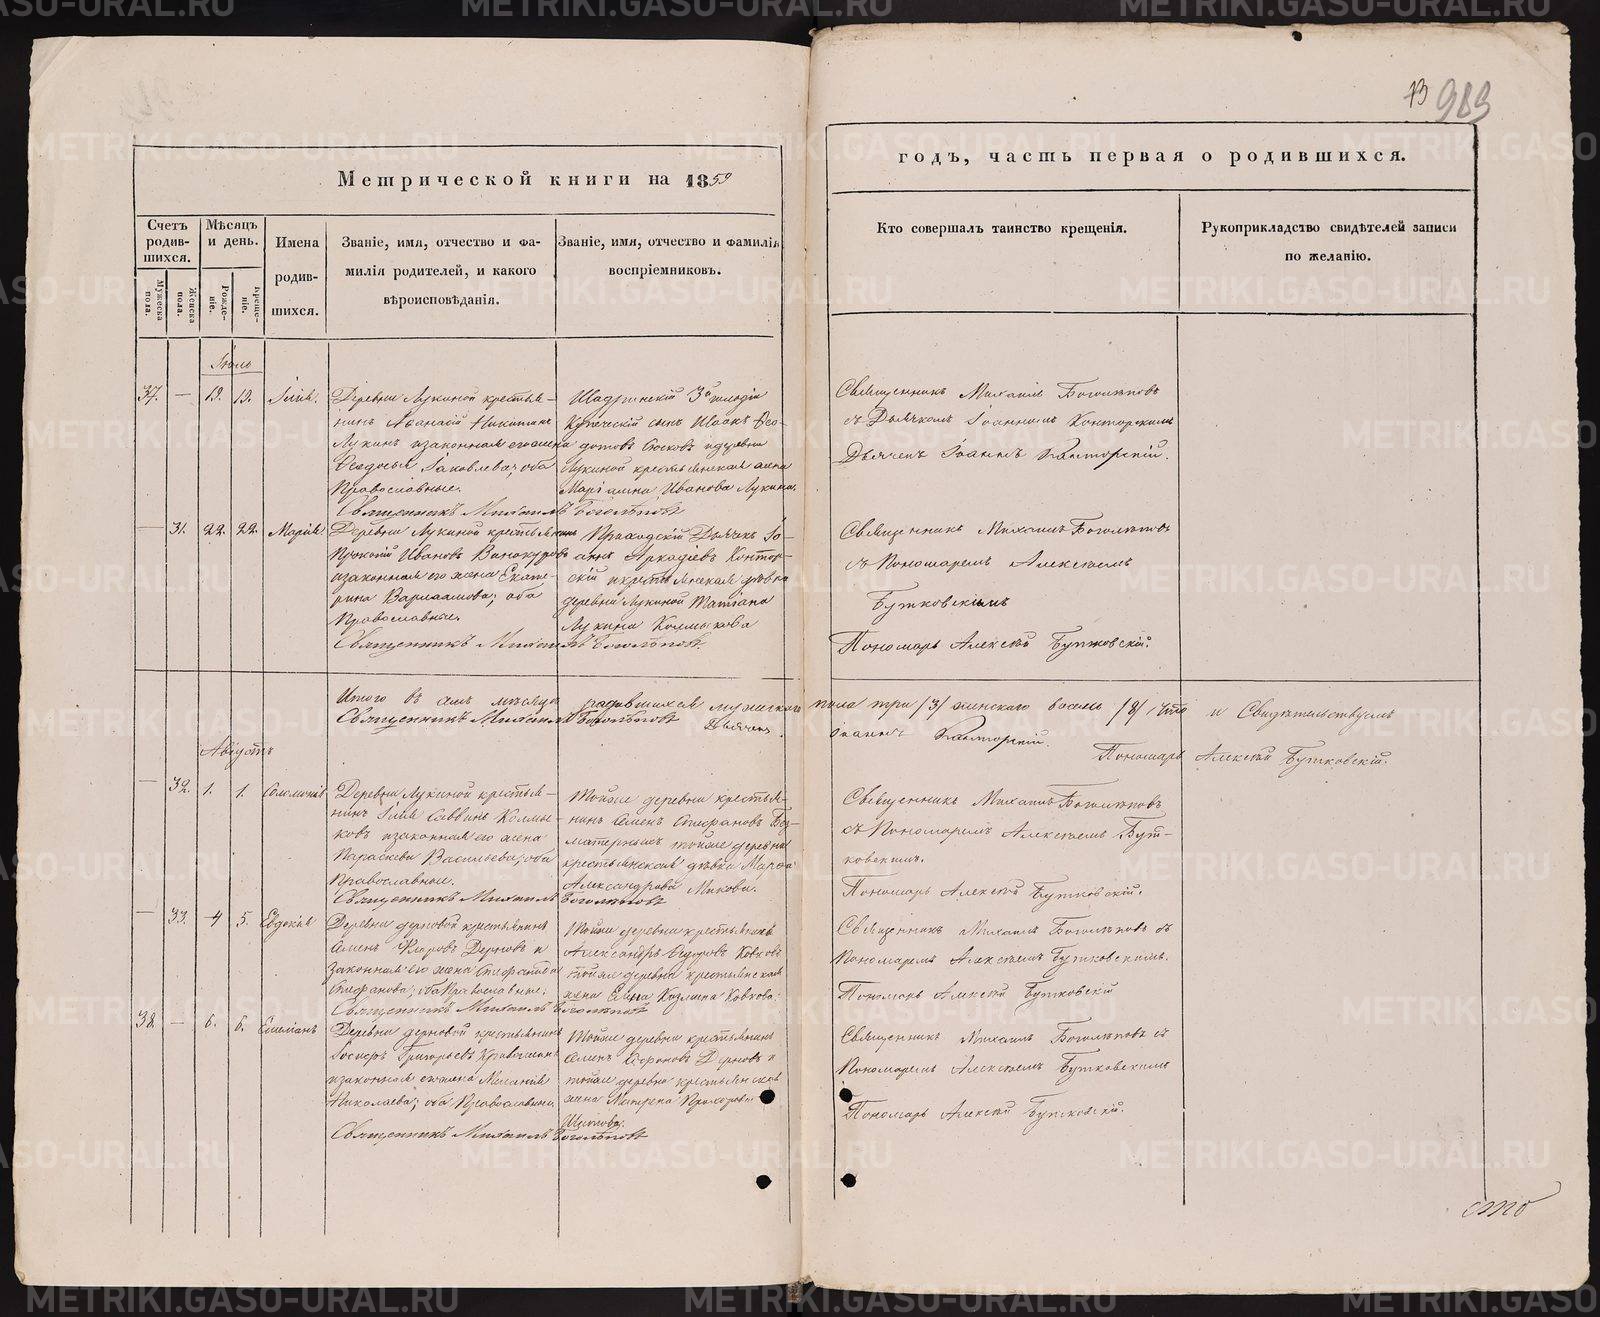 13 989
Метрической книги на 1859
годъ, часть первая о родившихся.
Счетъ родив-шихся.
Мужеска пола.
Женска пола.
Мѣсяцъ и день.
Рожде-ніе.
Креще-ніе.
Имена родив-шихся.
Званіе, имя, отчество и фа-
милія родителей, и какого
вѣроисповѣданія.
Званіе, имя, отчество и фамилія
воспріемниковъ.
Кто совершалъ таинство крещенія.
Рукоприкладство свидѣтелей записи
по желанію.
Іюль
37. — 19. 19. Илія.
Деревни Лукиной крестья-
нинъ Аѳанасій Никитинъ
Лукинъ и законная его жена
Ѳеодосья Іаковлева; оба
Православные.
Священникъ Михаилъ Боголѣповъ
Шадринскій 3й гильдіи
Купеческій сынъ Исаакъ Ѳео-
дотовъ и деревни
Лукиной крестьянская жена
Маріамна Иванова Лукина.
Священникъ Михаилъ Боголѣповъ
съ Дьячкомъ Іоанномъ Конторскимъ
Дьячекъ Іоаннъ Конторскій.
— 31. 22. 22. Марія
Деревни Лукиной крестьянинъ
Прокопій Ивановъ Винокуровъ
и законная его жена Екате-
рина Варлаамова; оба
Православные.
Священникъ Михаилъ Боголѣповъ.
Приходскій Дьячекъ Іо-
аннъ Аркадіевъ Контор-
скій и крестьянская дѣвка
деревни Лукиной Татіана
Лукина Колмыкова
Священникъ Михаилъ Боголѣповъ
съ Пономаремъ Алексѣемъ
Бутковскимъ
Пономарь Алексѣй Бутковскій.
Итого въ іюлѣ мѣсяцѣ родившихся мужескаго пола три /3/ женскаго восемь /8/, что и Свидѣтельствуемъ
Священникъ Михаилъ Боголѣповъ
Дьячекъ Іоаннъ Конторскій.
Пономарь Алексѣй Бутковскій.
Августъ
— 32. 1. 1. Соломонія
Деревни Лукиной крестья-
нинъ Илія Саввинъ Колмы-
ковъ и законная его жена
Параскева Васильева; оба
Православные.
Священникъ Михаилъ Боголѣповъ
Тойже деревни крестья-
нинъ Семенъ Стефановъ Без-
матерныхъ и тойже деревни
крестьянская дѣвка Марѳа
Александрова Микова.
Священникъ Михаилъ Боголѣповъ
съ Пономаремъ Алексѣемъ Бут-
ковскимъ.
Пономарь Алексѣй Бутковскій.
— 33. 4 5. Евдокія
Деревни Дерновой крестьянинъ
Семенъ Дерновъ и
законная его жена Стефанида
Стефанова; оба Православные.
Священникъ Михаилъ Боголѣповъ
Тойже деревни крестьянинъ
Александръ Ѳедоровъ Ковковъ
тойже деревни крестьянская
жена Елена Козмина Ковкова.
Священникъ Михаилъ Боголѣповъ съ
Пономаремъ Алексѣемъ Бутковскимъ.
Пономарь Алексѣй Бутковскій
38. — 6. 6. Емеліанъ
Деревни Дерновой крестьянинъ
Іосифъ Григорьевъ
и законная его жена Меланія
Николаева; оба Православные
Священникъ Михаилъ Боголѣповъ
Тойже деревни крестьянинъ
Семенъ Дерновъ и
тойже деревни крестьянская
жена Матрена Прохорова
Священникъ Михаилъ Боголѣповъ съ
Пономаремъ Алексѣемъ Бутковскимъ
Пономарь Алексѣй Бутковскій.
METRIKI.GASO-URAL.RU